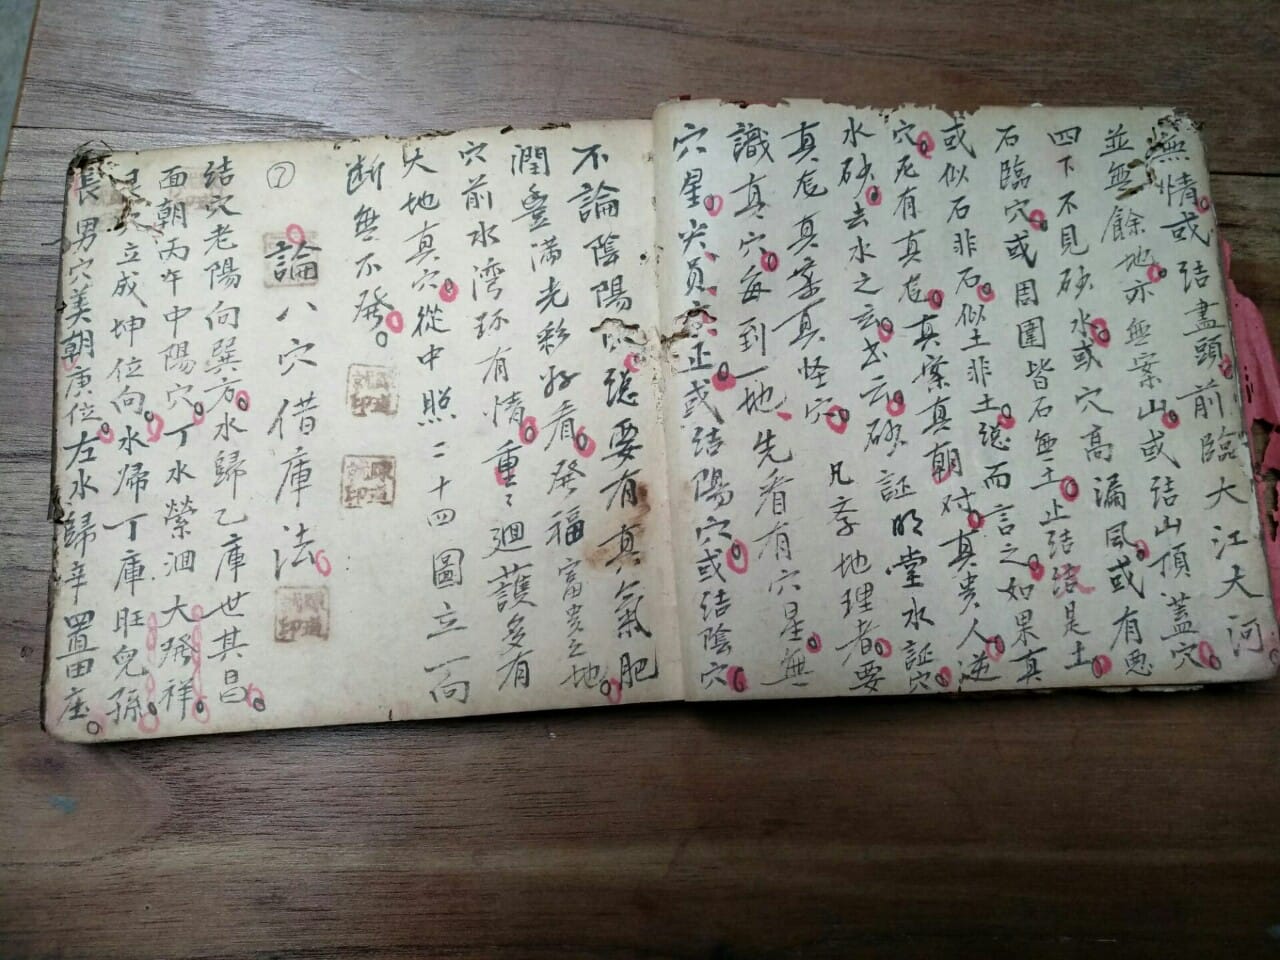 無情或結盡頭前臨大江大河
並無餘地亦無案山或結山頂蓋穴
四下不見砂水或穴高漏風或有惡
石臨穴或周圍皆石無土止結是土
或似石非石似土非土總而言之如果真
穴尼有真龙真案真朝对真贵人逆
水砂去水之玄书云砂証明堂水証穴
真龙真案真怪穴凡李地理者要
識真穴每到一地先看有穴星無
穴星尖員正或结陽穴或結陰穴
不論陰陽穴總要有真氣肥
潤豊满光彩好看発福富贵之地
穴前水湾环有情重重迴護多有
大地真穴從中照二十四圖立一向
断無不発
⑦ 論八穴借庫法
結穴老陽向巽方水歸乙庫世其昌
面朝丙午中陽穴丁水縈洄大発祥
穴立成坤位向水帰丁庫旺兒孫
長男穴美朝庚位左水歸辛置田庄